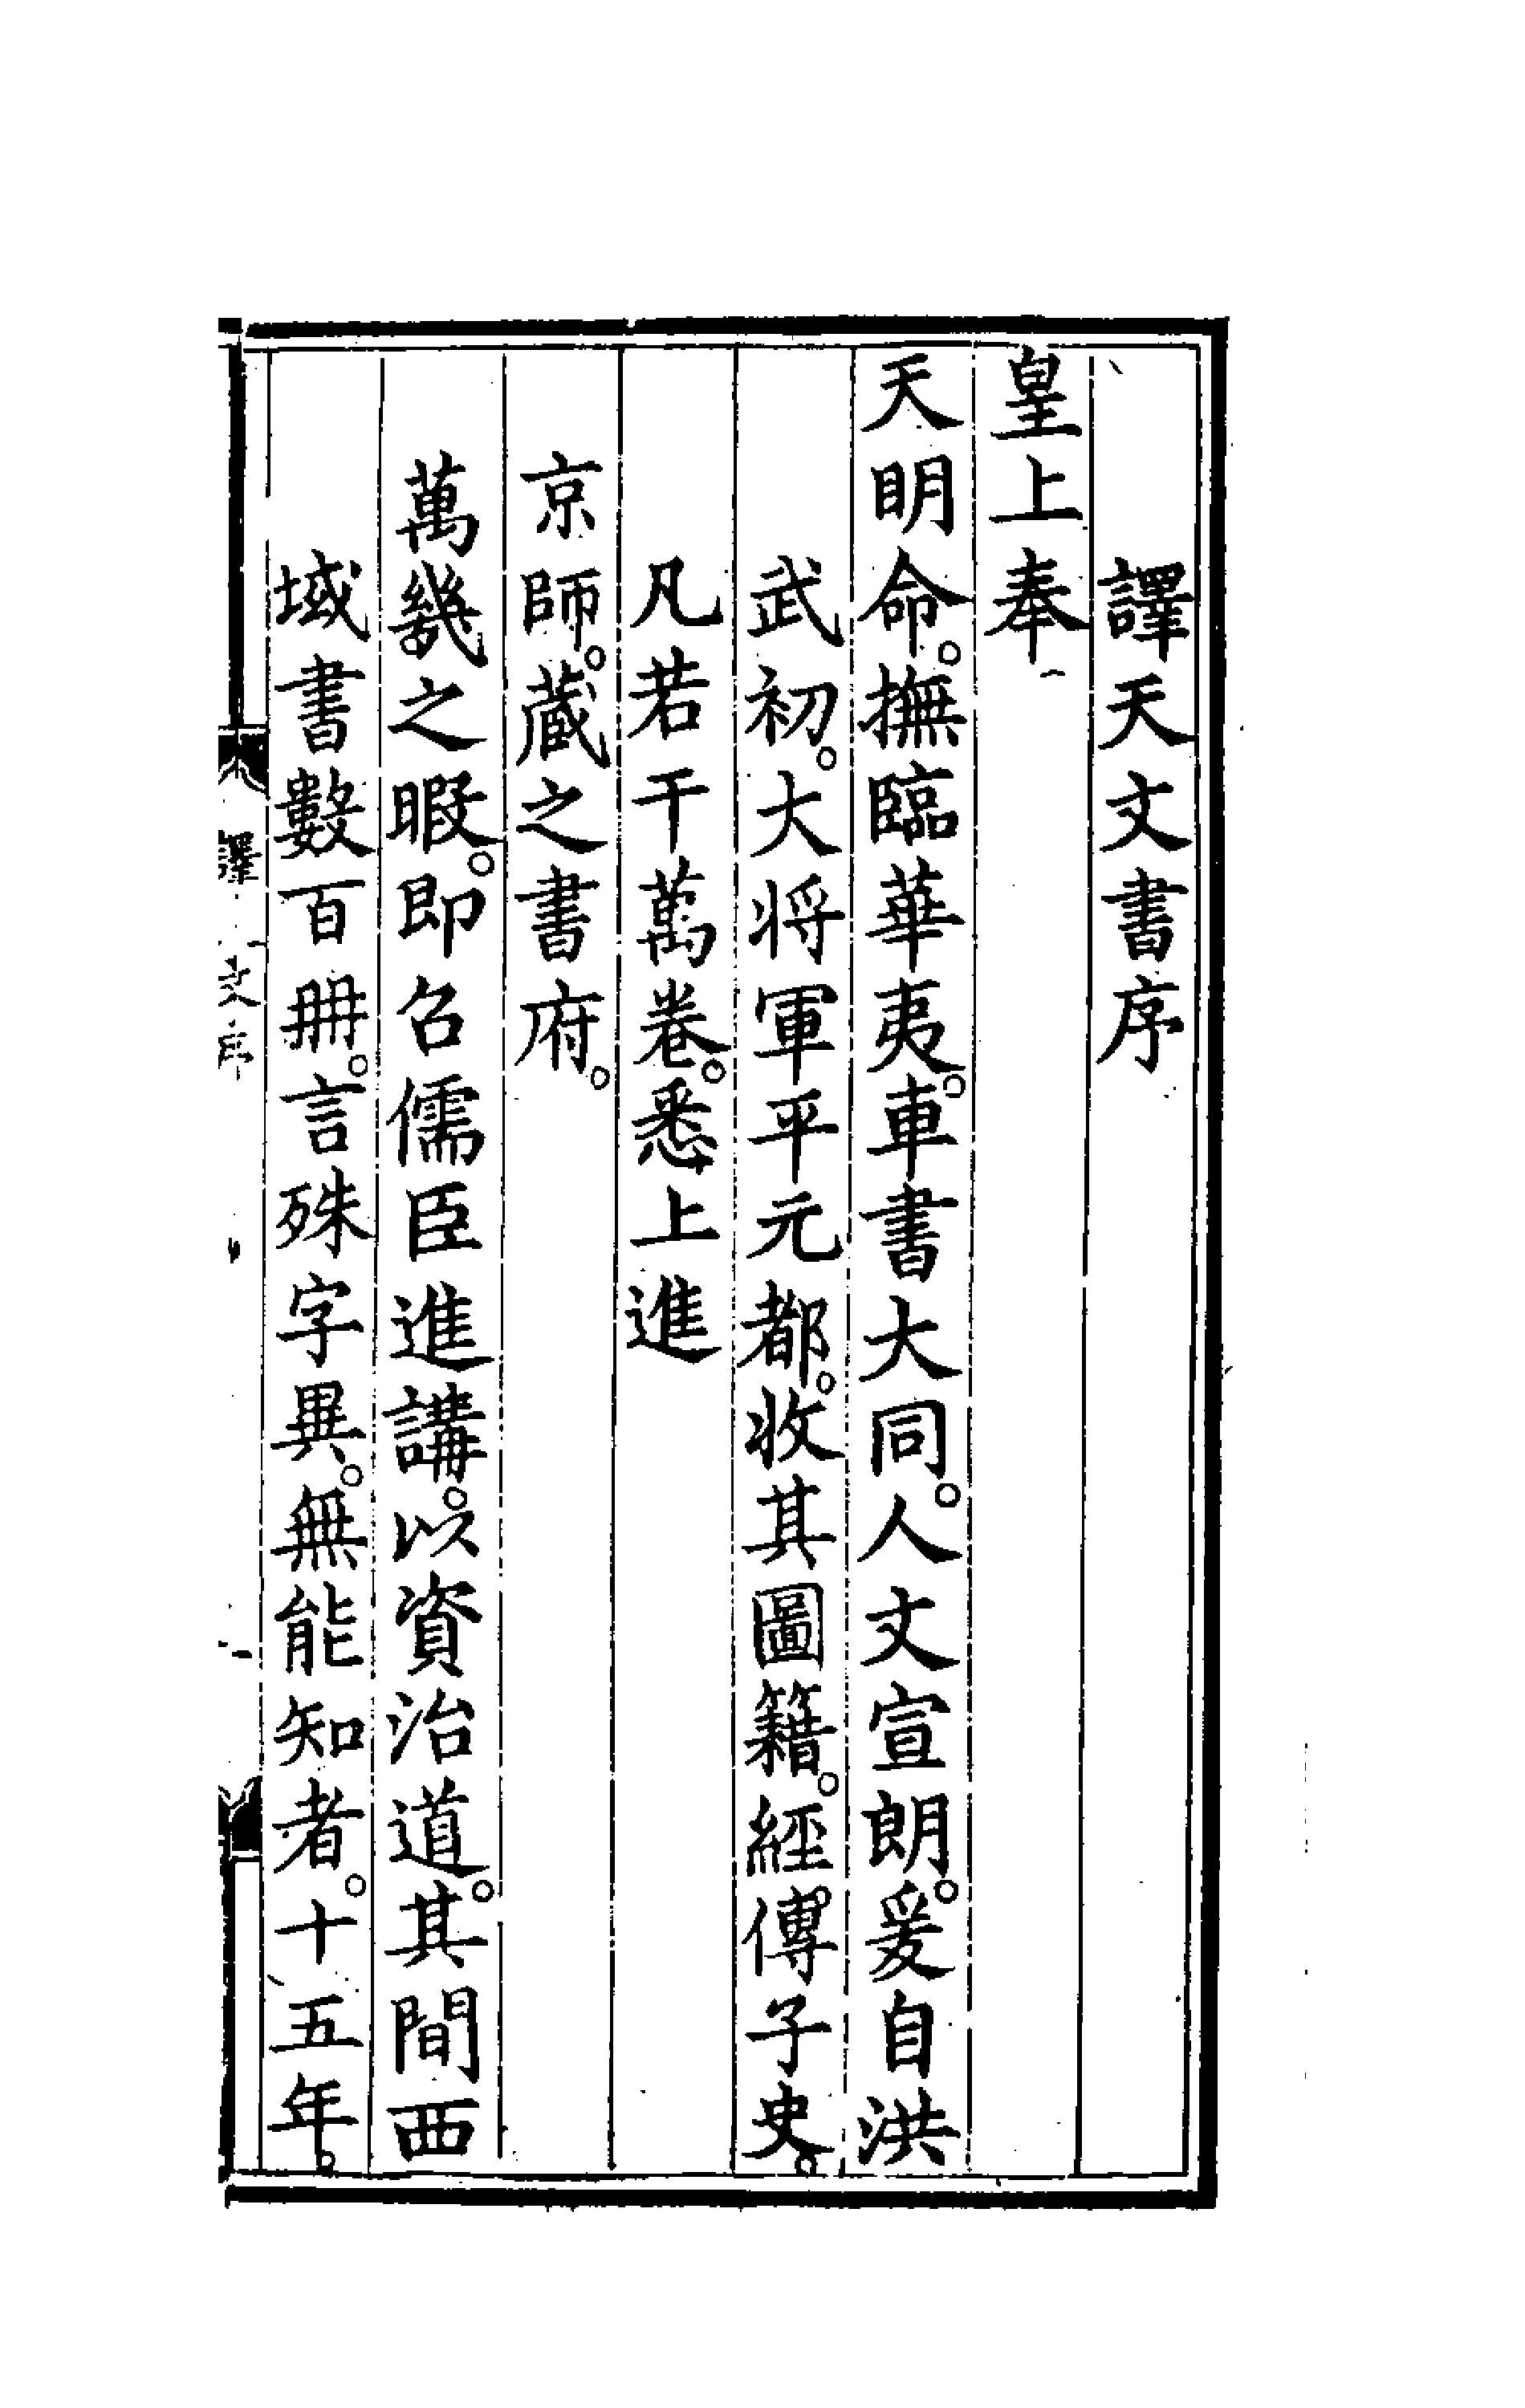 譯天文書序
皇上奉
天明命。撫臨華夷。車書大同。人文宣朗。爰自洪
武初。大将軍平元都。收其圖籍。經傳子史。
凡若干萬卷。悉上進
京師。藏之書府。
萬幾之暇。即召儒臣進講。以資治道。其間西
域書數百冊。言殊字異。無能知者。十五年。
譯 文序